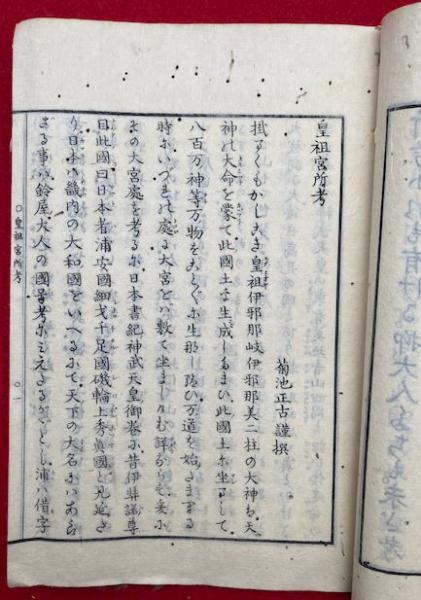 皇祖宮所考
菊池正古謹撰
掛まくもかしこき皇祖伊邪那岐伊邪那美二柱の大神は天
神の大命を蒙て此國土を生成したまひ此國土に坐まして
八百万神等万物をことごとに生那し給ひ万道を始たまへる
時にいづれの處に大宮をば敷て坐ましけむ詳ならず爰に
その大宮處を考るに日本書紀神武天皇御巻に昔伊弉諾尊
目此國曰日本者浦安國細戈千足國磯輪上秀真國と見えたる
り日本は畿内の大和國をいへるにて天下の大名にはあら
ざる事は鈴屋大人の國号考にみえたるごとし浦は借字
○皇祖宮所考
○一